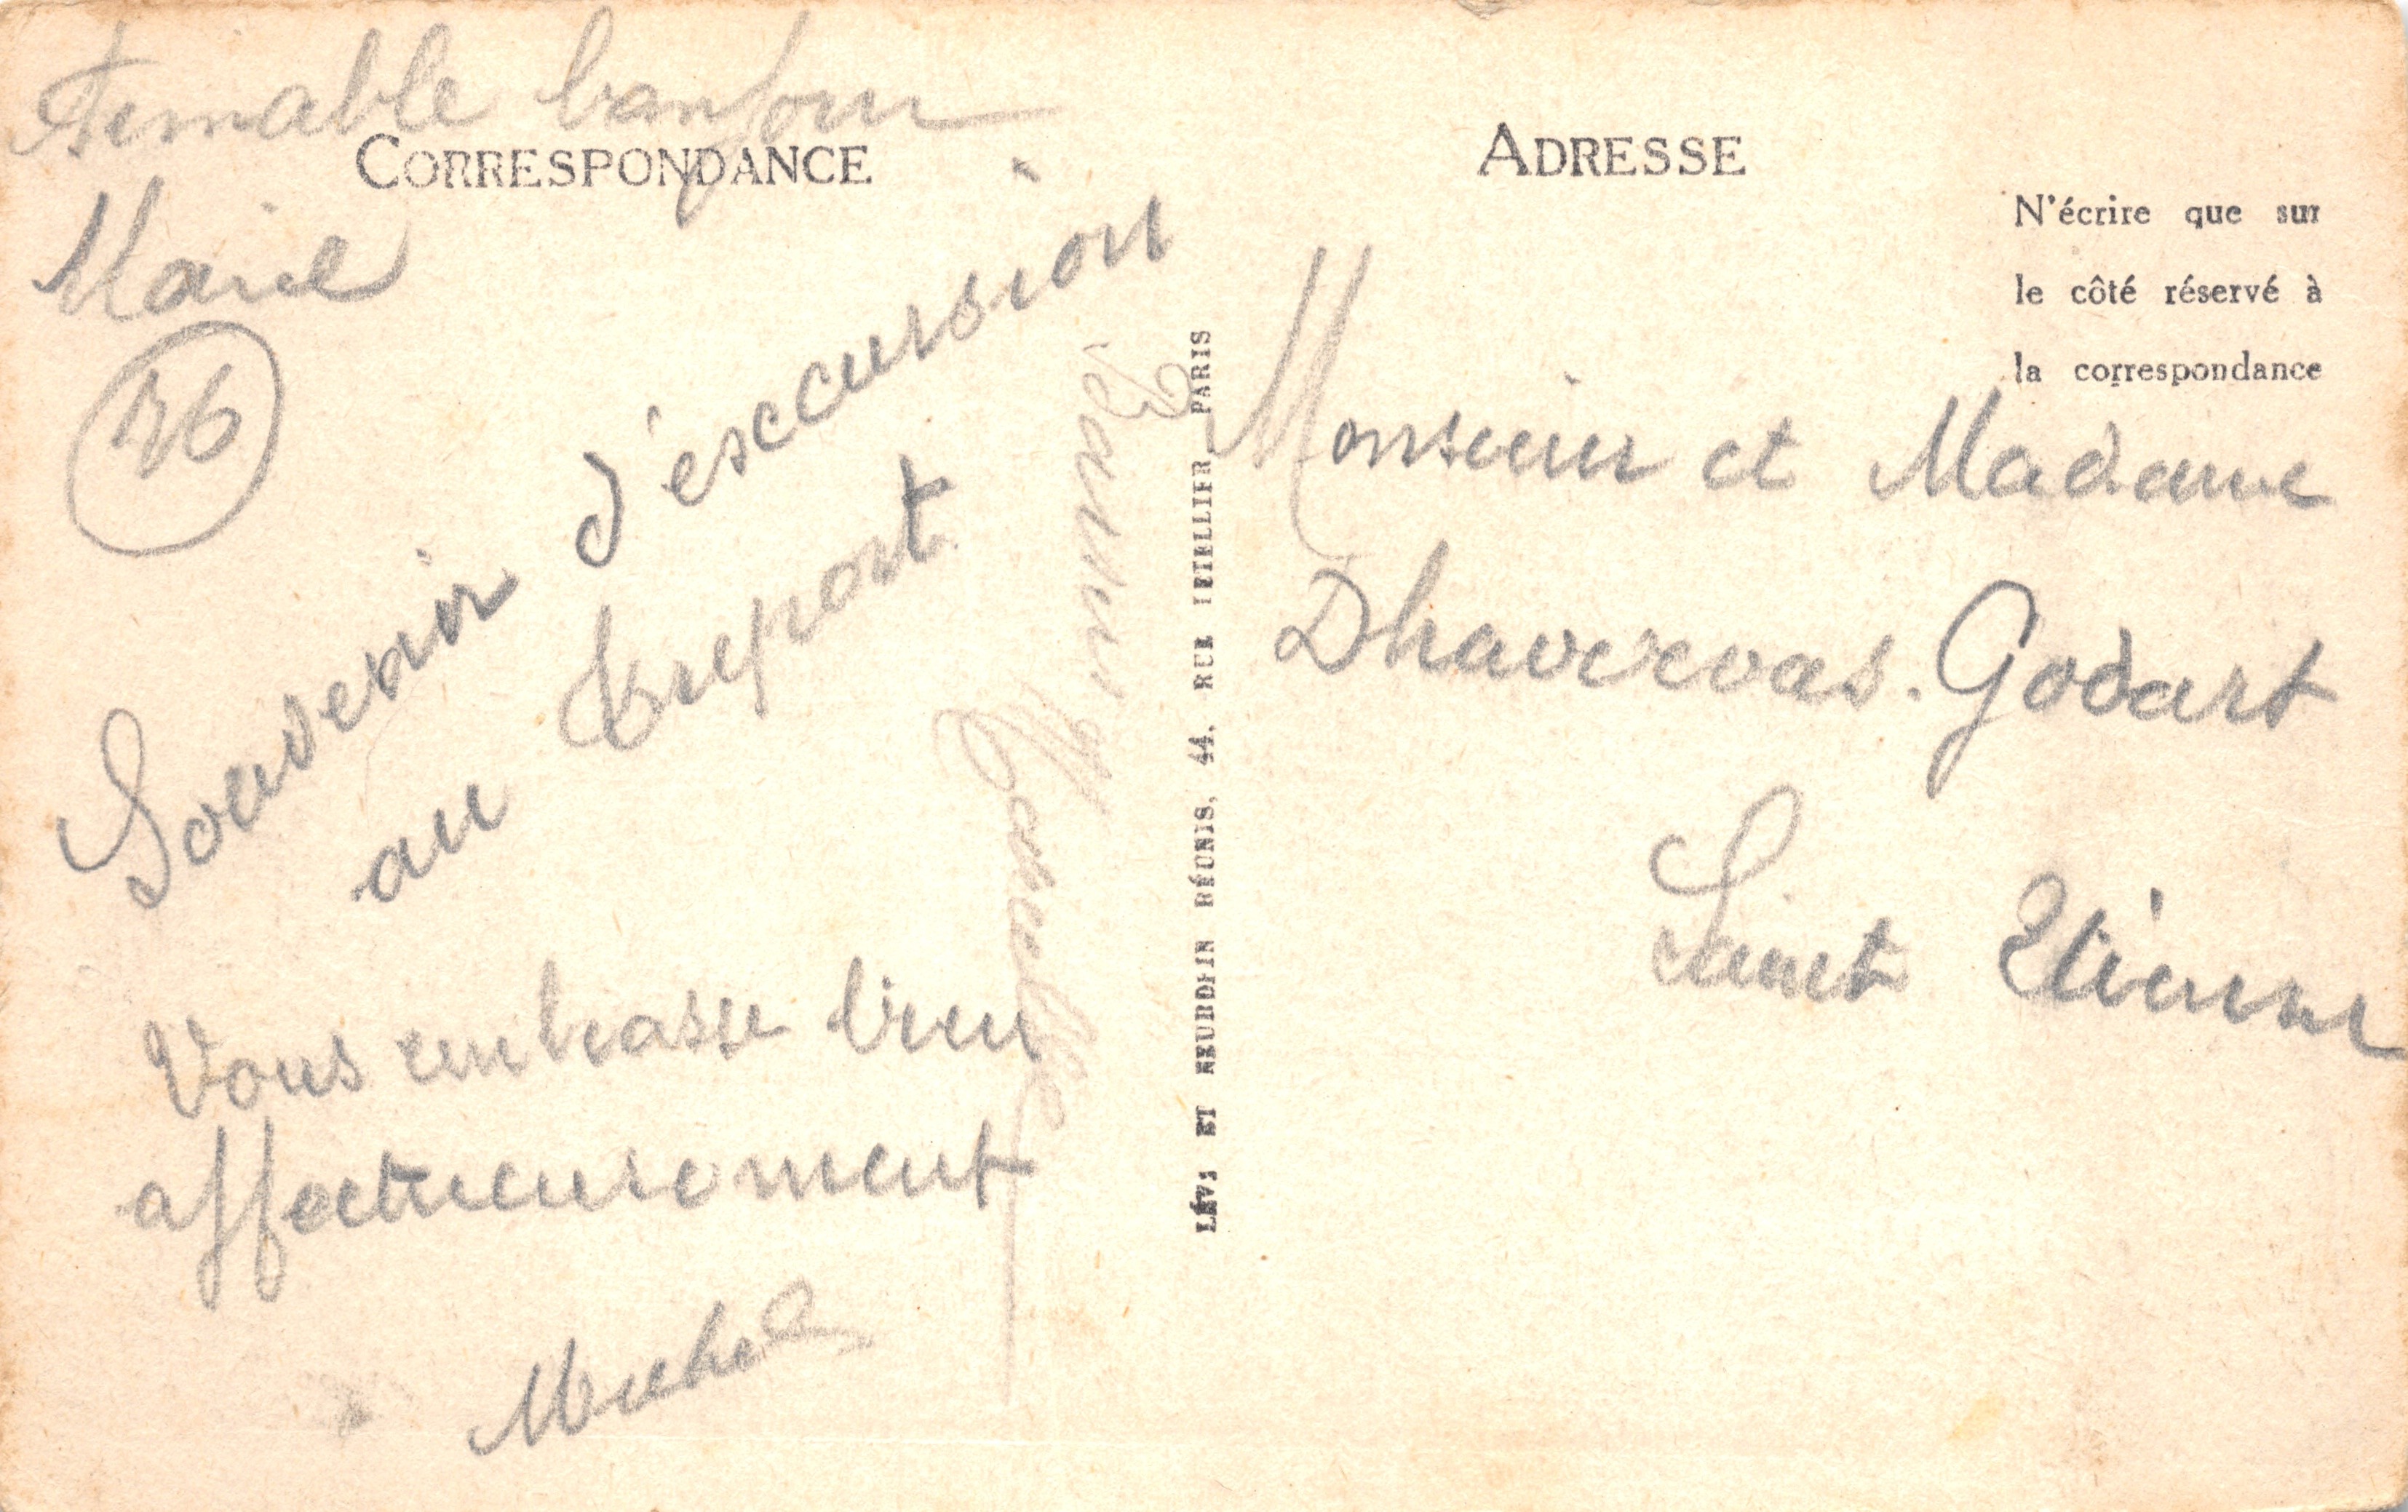 Aimable bonjour
Marie
CORRESPONDANCE
Souvenir d'esccursion
au Treport
Vous embrasse bien
affectueusement
Michel
LÉVY ET NEURDEIN RÉUNIS, 44, RUE LETELLIER, PARIS
ADRESSE
N'écrire que sur
le côté réservé à
la correspondance
Monsieur et Madame
Dhavervas. Godart
Saint Etienne